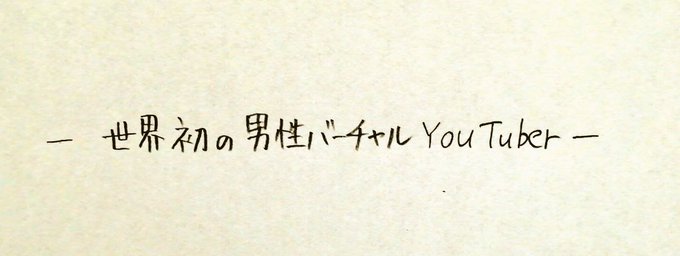 ― 世界初の男性バーチャル YouTuber ―